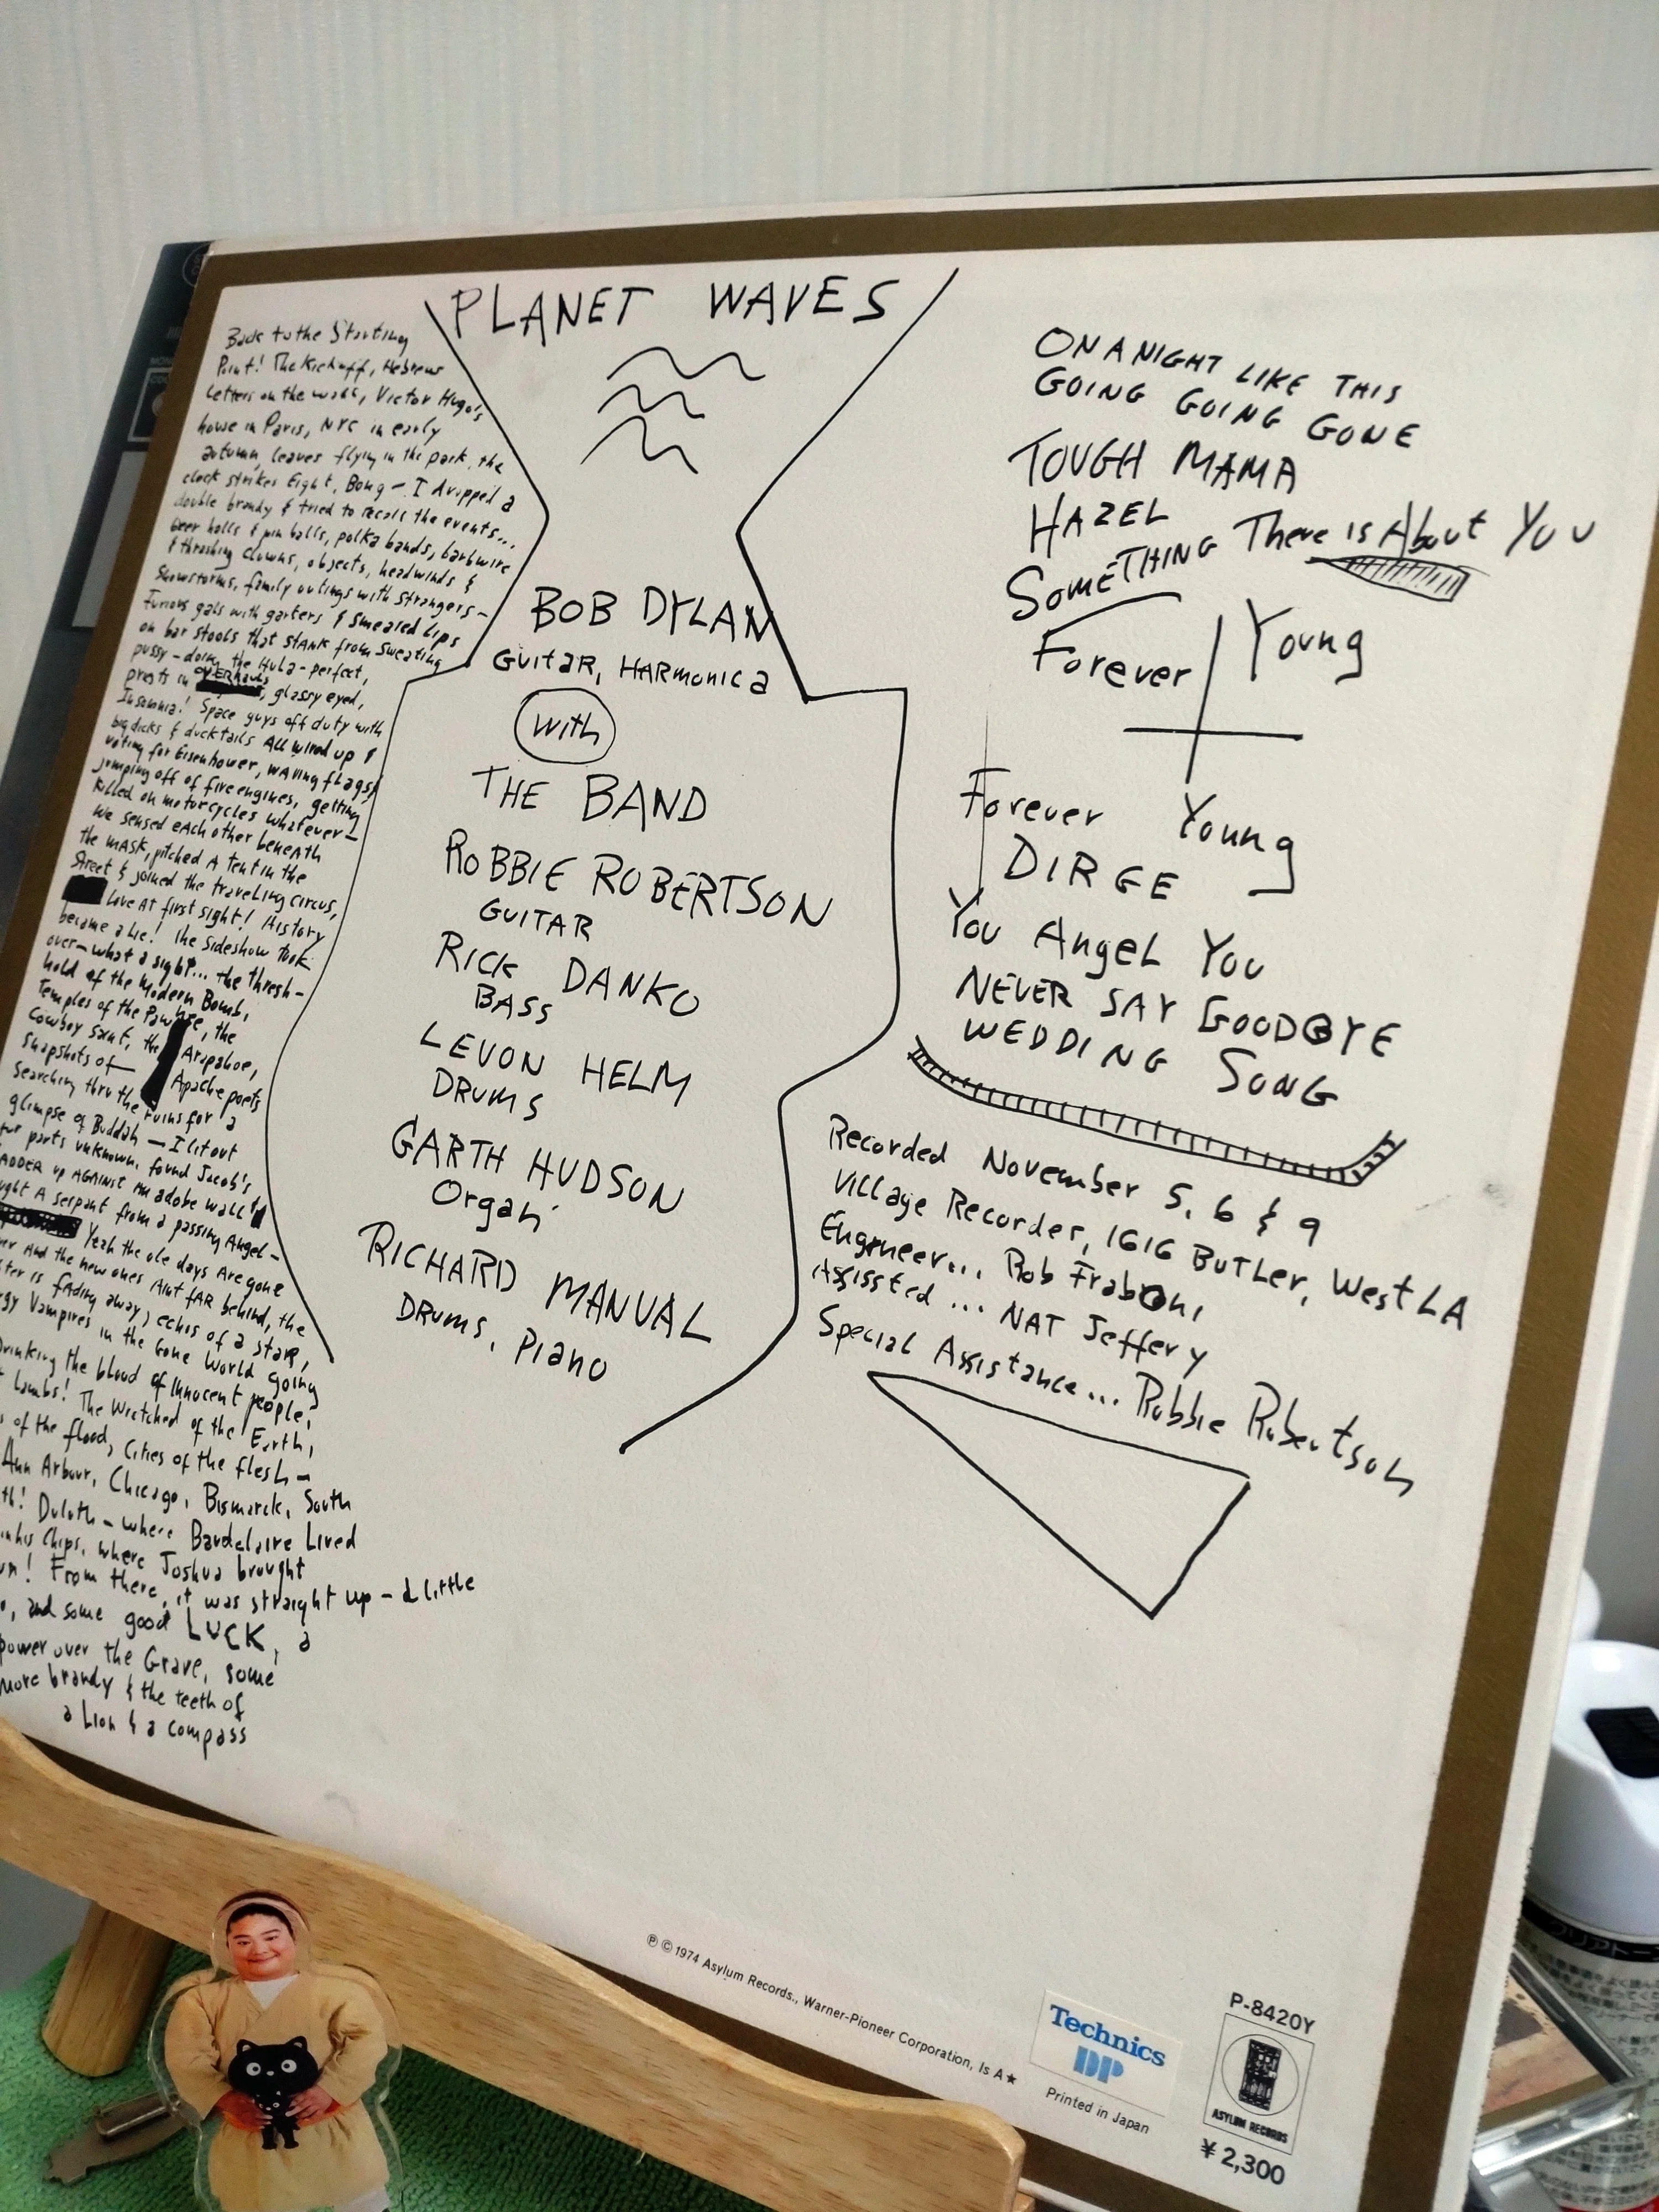 PLANET WAVES
Back to the Starting
Point! The Kickoff, Hebrew
Letters on the wall, Victor Hugo's
house in Paris, NYC in early
autumn, leaves flying in the park, the
clock strikes Eight, Bong — I dropped a
double brandy & tried to recall the events...
beer halls & pin balls, polka bands, barbwire
& thrashing clowns, objects, headwinds &
Snowstorms, family outings with strangers —
Furious gals with garters & smeared lips
on bar stools that stank from sweating
pussy — doing the Hula — perfect,
priests in OVERhauls, glassy eyed,
Insomnia! Space guys off duty with
big dicks & ducktails All wired up &
voting for Eisenhower, waving flags &
jumping off of fire engines, getting
killed on motorcycles whatever —
We sensed each other beneath
the mask, pitched a tent in the
street & joined the traveling circus,
Love at first sight! History
became a Lie! The Sideshow took
over — what a sight... the thresh-
hold of the Modern Bomb,
Temples of the Pawnee, the
Cowboy saint, the Arapahoe,
snapshots of Apache poets
searching thru the ruins for a
glimpse of Buddah — I lit out
for parts unknown, found Jacob's
ADDER up AGAINST an adobe wall &
ught A serpant from a passing Angel —
Yeah the ole days Are gone
er And the new ones Aint fAR behind, the
ter is fading away, echos of a staR,
gy Vampires in the Gone World going
rinking the blood of innocent people,
t Lambs! The Wretched of the Earth,
s of the flood, Cities of the flesh —
Ann Arbour, Chicago, Bismarck, South
th! Duluth — where Baudelaire Lived
in his Chips, where Joshua brought
un! From there, it was straight up — a little
o, and some good LUCK, a
power over the Grave, some
more brandy & the teeth of
a Lion & a compass
BOB DYLAN
GUITAR, HARMONICA
With
THE BAND
ROBBIE ROBERTSON
GUITAR
RICK DANKO
BASS
LEVON HELM
DRUMS
GARTH HUDSON
Organ
RICHARD MANUAL
DRUMS, PIANO
ON A NIGHT LIKE THIS
GOING GOING GONE
TOUGH MAMA
HAZEL
SOMETHING There is About You
Forever Young
Forever Young
DIRGE
You Angel You
NEVER SAY GOODBYE
WEDDING SONG
Recorded November 5, 6 & 9
Village Recorder, 1616 BUTLER, West LA
Engineer... Rob Fraboni
Assissted... NAT Jeffery
Special Assistance... Robbie Robertson
℗ © 1974 Asylum Records., Warner-Pioneer Corporation, Is A★
Technics
DP
Printed in Japan
P-8420Y
ASYLUM RECORDS
¥2,300